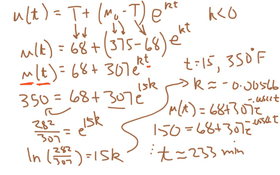 u(t) = T + (u₀ - T) e^{kt}   k < 0
u(t) = 68 + (375 - 68) e^{kt}
u(t) = 68 + 307e^{kt}   t = 15, 350°F
350 = 68 + 307 e^{15k}   k ≈ -0.00566
282/307 = e^{15k}   u(t) = 68 + 307e^{-.00566t}
ln(282/307) = 15k   150 = 68 + 307e^{-.00566t}
⋮ t ≈ 233 min